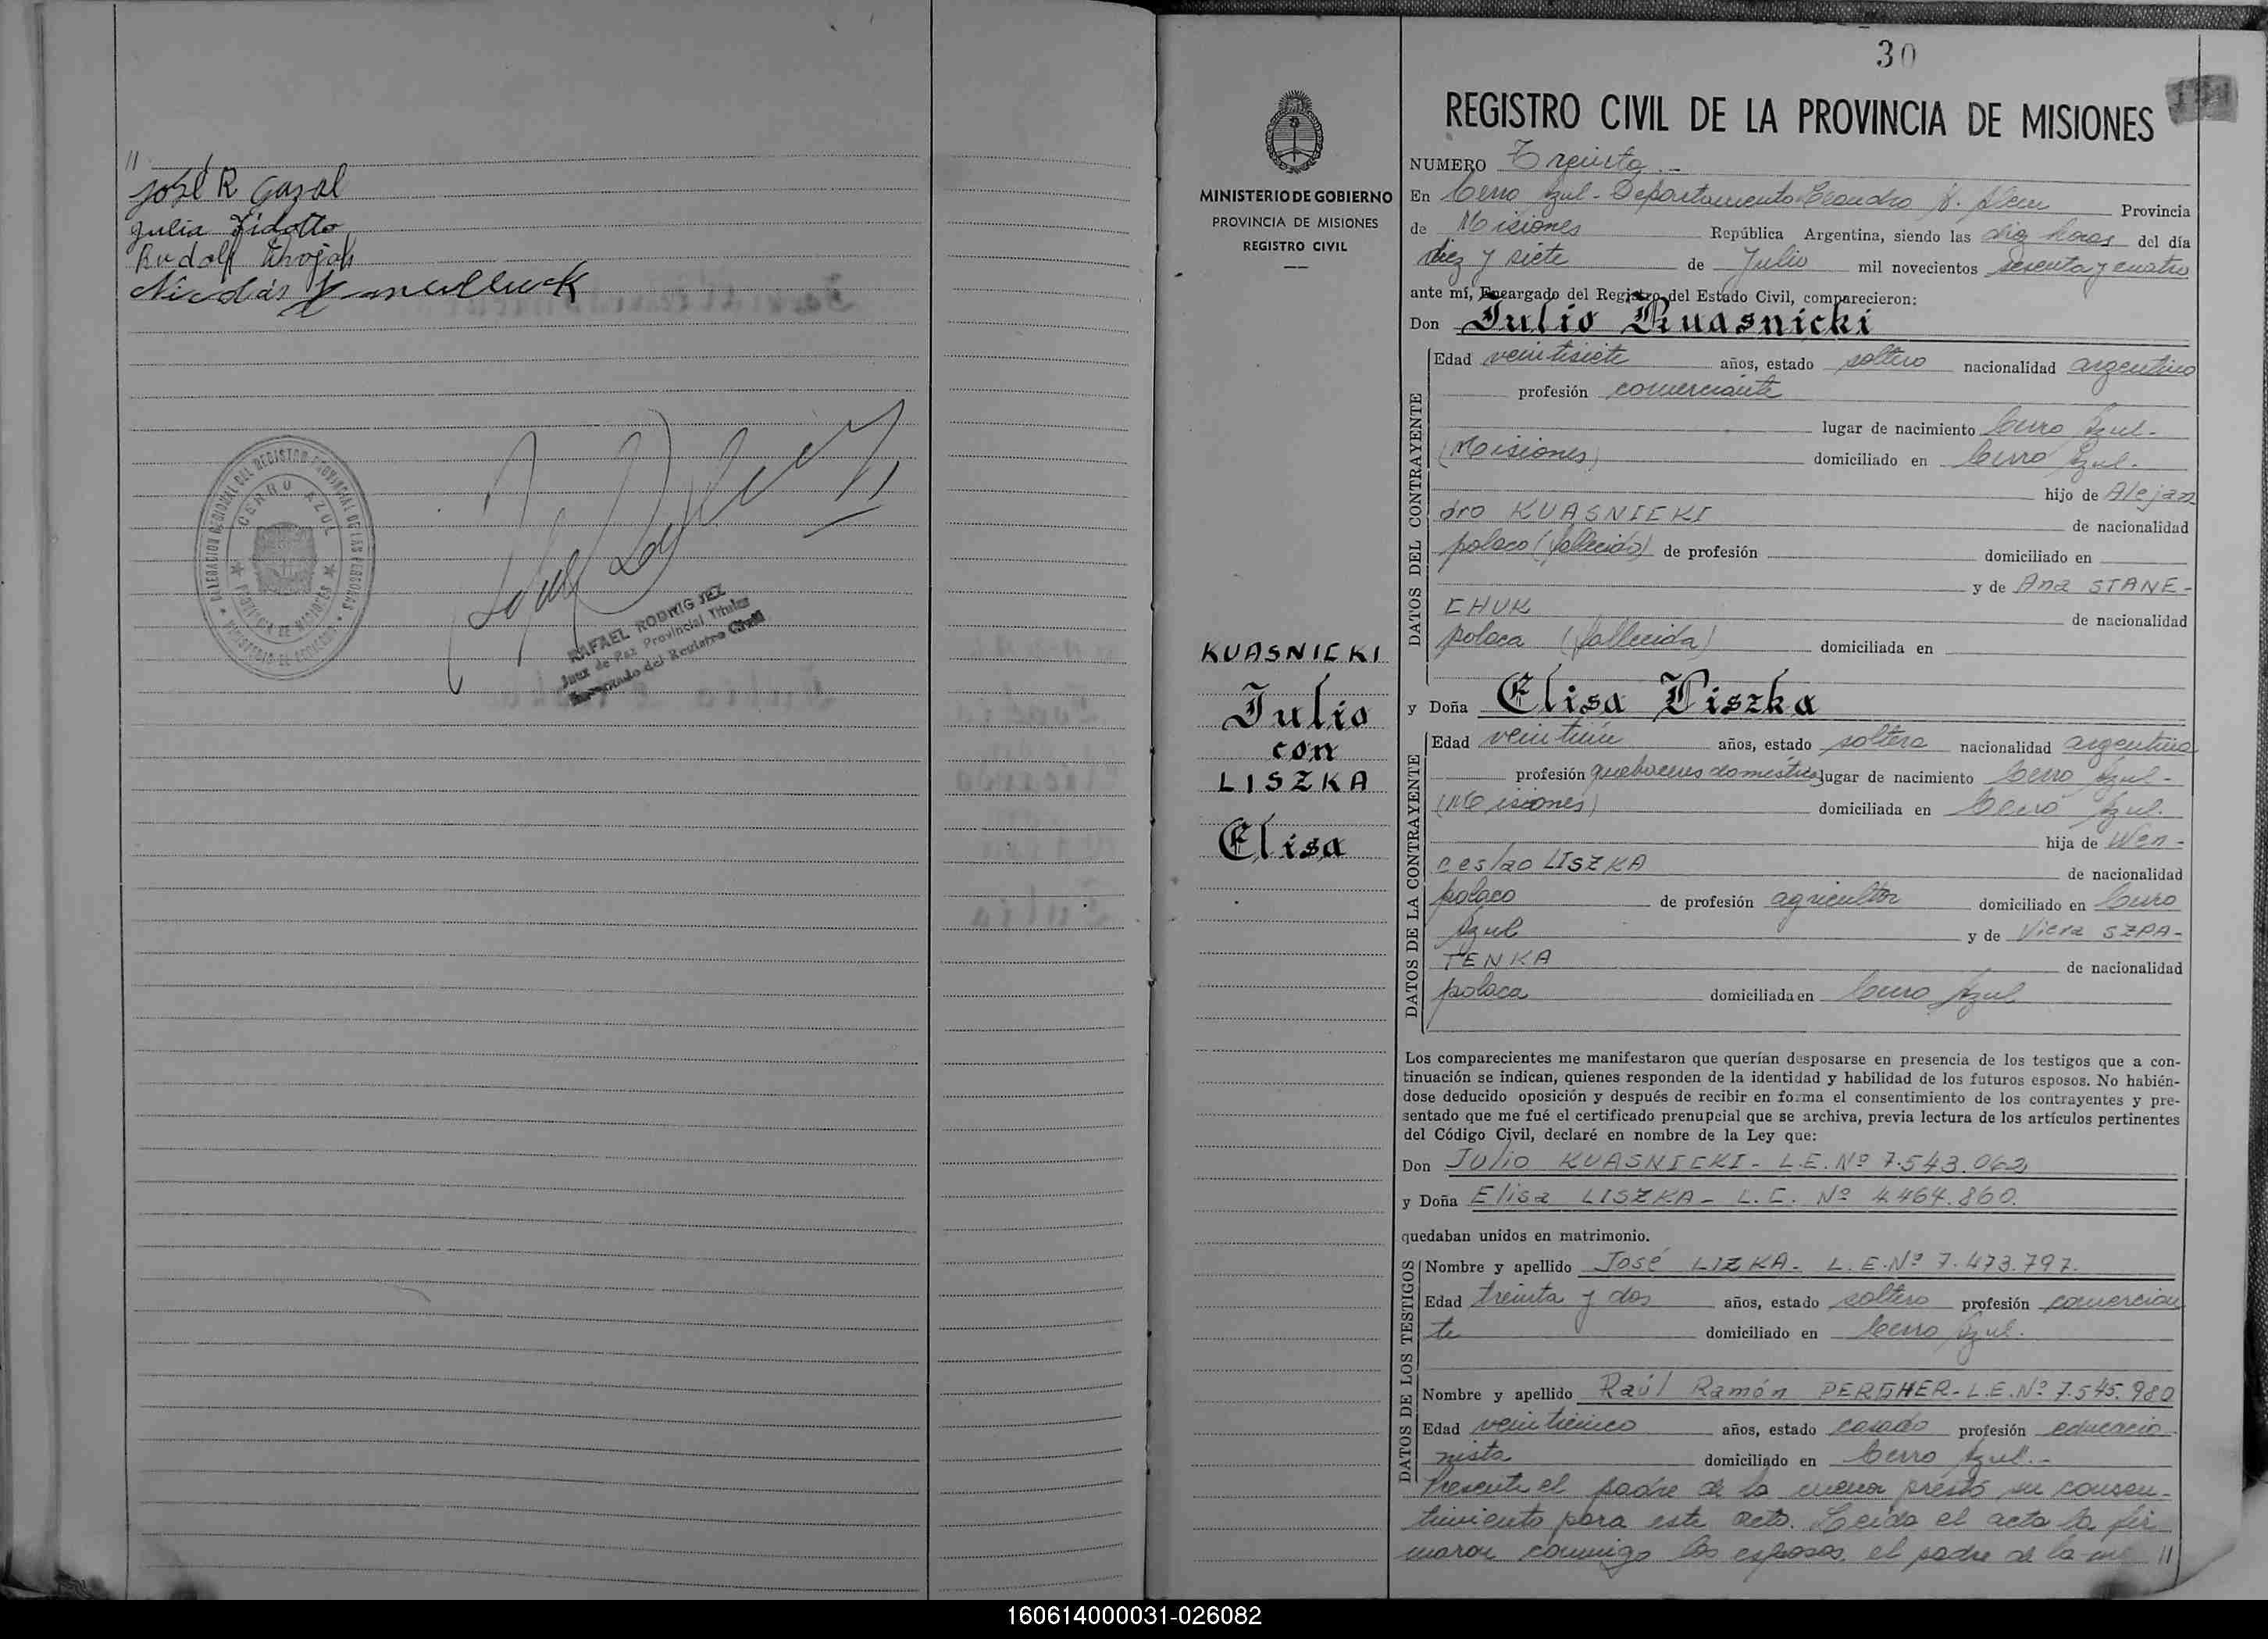 //
José R Gazal
Julia Fidotto
Rudolf
Nicolás
DELEGACION REGIONAL DEL REGISTRO PROVINCIAL DE LAS PERSONAS
CERRO AZUL
PROVINCIA DE MISIONES
RAFAEL RODRIGUEZ
Juez de Paz Provincial Titular
Encargado del Registro Civil
30
REGISTRO CIVIL DE LA PROVINCIA DE MISIONES
MINISTERIO DE GOBIERNO
PROVINCIA DE MISIONES
REGISTRO CIVIL
KUASNICKI
Julio
con
LISZKA
Elisa
NUMERO Treinta.-
En Cerro Azul - Departamento Leandro N. Alem Provincia
de Misiones República Argentina, siendo las diez horas del día
diez y siete de Julio mil novecientos sesenta y cuatro
ante mí, Encargado del Registro del Estado Civil, comparecieron:
Don Julio Kuasnicki
DATOS DEL CONTRAYENTE
Edad veintisiete años, estado soltero nacionalidad argentino
profesión comerciante
lugar de nacimiento Cerro Azul-
(Misiones) domiciliado en Cerro Azul.
hijo de Alejan
dro KUASNICKI de nacionalidad
polaco (fallecido) de profesión domiciliado en
y de Ana STANE-
CHUK de nacionalidad
polaca (fallecida) domiciliada en
y Doña Elisa Liszka
DATOS DE LA CONTRAYENTE
Edad veintiún años, estado soltera nacionalidad argentina
profesión quehaceres domésticos lugar de nacimiento Cerro Azul-
(Misiones) domiciliada en Cerro Azul.
hija de Wen-
ceslao LISZKA de nacionalidad
polaco de profesión agricultor domiciliado en Cerro
Azul y de Viera SZPA-
TENKA de nacionalidad
polaca domiciliada en Cerro Azul
Los comparecientes me manifestaron que querían desposarse en presencia de los testigos que a con-
tinuación se indican, quienes responden de la identidad y habilidad de los futuros esposos. No habién-
dose deducido oposición y después de recibir en forma el consentimiento de los contrayentes y pre-
sentado que me fué el certificado prenupcial que se archiva, previa lectura de los artículos pertinentes
del Código Civil, declaré en nombre de la Ley que:
Don Julio KUASNICKI - L.E. Nº 7.543.062
y Doña Elisa LISZKA - L.C. Nº 4.464.860.
quedaban unidos en matrimonio.
DATOS DE LOS TESTIGOS
Nombre y apellido José LIZKA - L.E. Nº 7.473.797.
Edad treinta y dos años, estado soltero profesión comercian
te domiciliado en Cerro Azul.
Nombre y apellido Raúl Ramón PERGHER - L.E. Nº 7.545.980
Edad veinticinco años, estado casado profesión educacio
nista domiciliado en Cerro Azul.-
Presente el padre de la menor prestó su consen-
timiento para este acto. Leída el acta la fir
maron conmigo los esposos, el padre de la me //
160614000031-026082